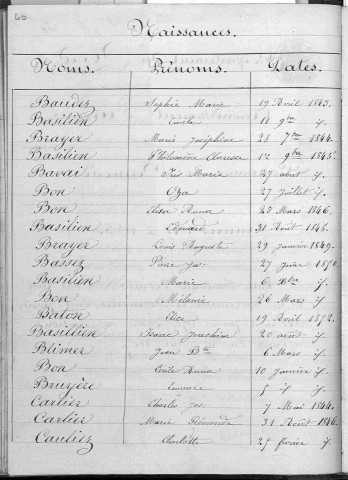 40
Naissances.
Noms. Prénoms. Dates.
Baudez Sophie Marie 19 Avril 1843.
Basilien Emile 11 9bre if.
Brayer Marie Joséphine 28 7bre 1844.
Basilien Philomène Clarisse 12 9bre 1845.
Bavai Iris Marie 27 août if.
Bon Oza 27 juillet if.
Bon Elisa Anna 23 Mars 1846.
Basilien Edouard 31 Août 1848.
Brayer Louis Auguste 29 janvier 1849.
Bassez Pierre Jos 27 juin 1850.
Basilien Marie 6 Xbre if.
Bon Mélanie 26 Mars if.
Baton Elice 19 Avril 1852.
Basilien Joachim 20 août if.
Blimer Jean Bte 6 Mars if.
Bon Emile 10 janvier if.
Bruyère 5 if if.
Cartier Charles Jos 7 Mai 1844.
Cartier Marie 31 Août 1846.
Caulier Charlotte 25 février if.